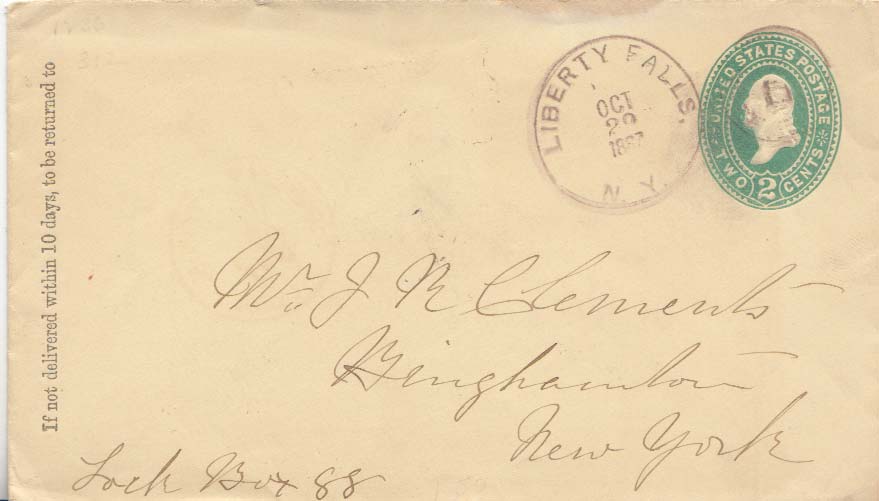 If not delivered within 10 days, to be returned to
LIBERTY FALLS,
OCT
29
1887
N. Y.
UNITED STATES POSTAGE
TWO 2 CENTS
Mr. J R Clements
Binghamton
New York
Lock Box 88